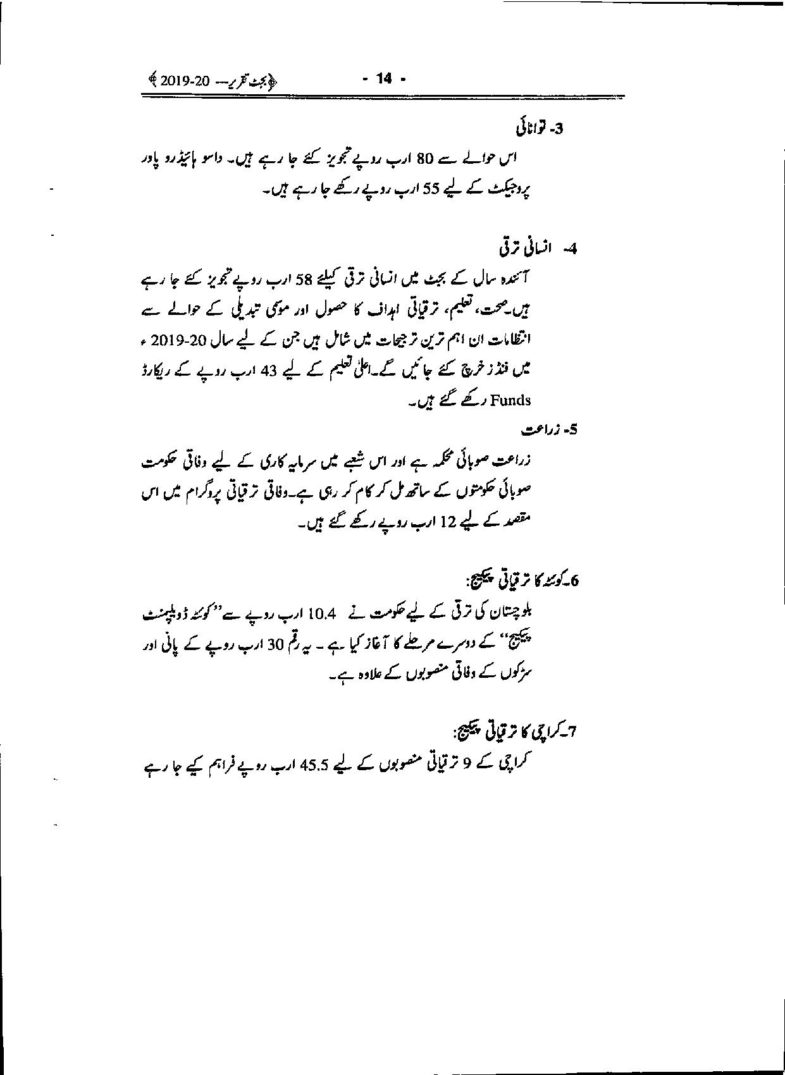 ﴿بجٹ تقریر--- 20-2019﴾ - 14 -
3- توانائی
اس حوالے سے 80 ارب روپے تجویز کئے جا رہے ہیں۔ داسو ہائیڈرو پاور
پروجیکٹ کے لیے 55 ارب روپے رکھے جا رہے ہیں۔
4- انسانی ترقی
آئندہ سال کے بجٹ میں انسانی ترقی کیلئے 58 ارب روپے تجویز کئے جا رہے
ہیں۔صحت، تعلیم، ترقیاتی اہداف کا حصول اور موسمی تبدیلی کے حوالے سے
انتظامات ان اہم ترین ترجیحات میں شامل ہیں جن کے لیے سال 20-2019 ء
میں فنڈز خرچ کئے جائیں گے۔اعلیٰ تعلیم کے لیے 43 ارب روپے کے ریکارڈ
Funds رکھے گئے ہیں۔
5- زراعت
زراعت صوبائی محکمہ ہے اور اس شعبے میں سرمایہ کاری کے لیے وفاقی حکومت
صوبائی حکومتوں کے ساتھ مل کر کام کر رہی ہے۔وفاقی ترقیاتی پروگرام میں اس
مقصد کے لیے 12 ارب روپے رکھے گئے ہیں۔
6۔کوئٹہ کا ترقیاتی پیکیج:
بلوچستان کی ترقی کے لیے حکومت نے 10.4 ارب روپے سے ’’کوئٹہ ڈویلپمنٹ
پیکیج‘‘ کے دوسرے مرحلے کا آغاز کیا ہے ۔ یہ رقم 30 ارب روپے کے پانی اور
سڑکوں کے وفاقی منصوبوں کے علاوہ ہے۔
7۔کراچی کا ترقیاتی پیکیج:
کراچی کے 9 ترقیاتی منصوبوں کے لیے 45.5 ارب روپے فراہم کیے جا رہے